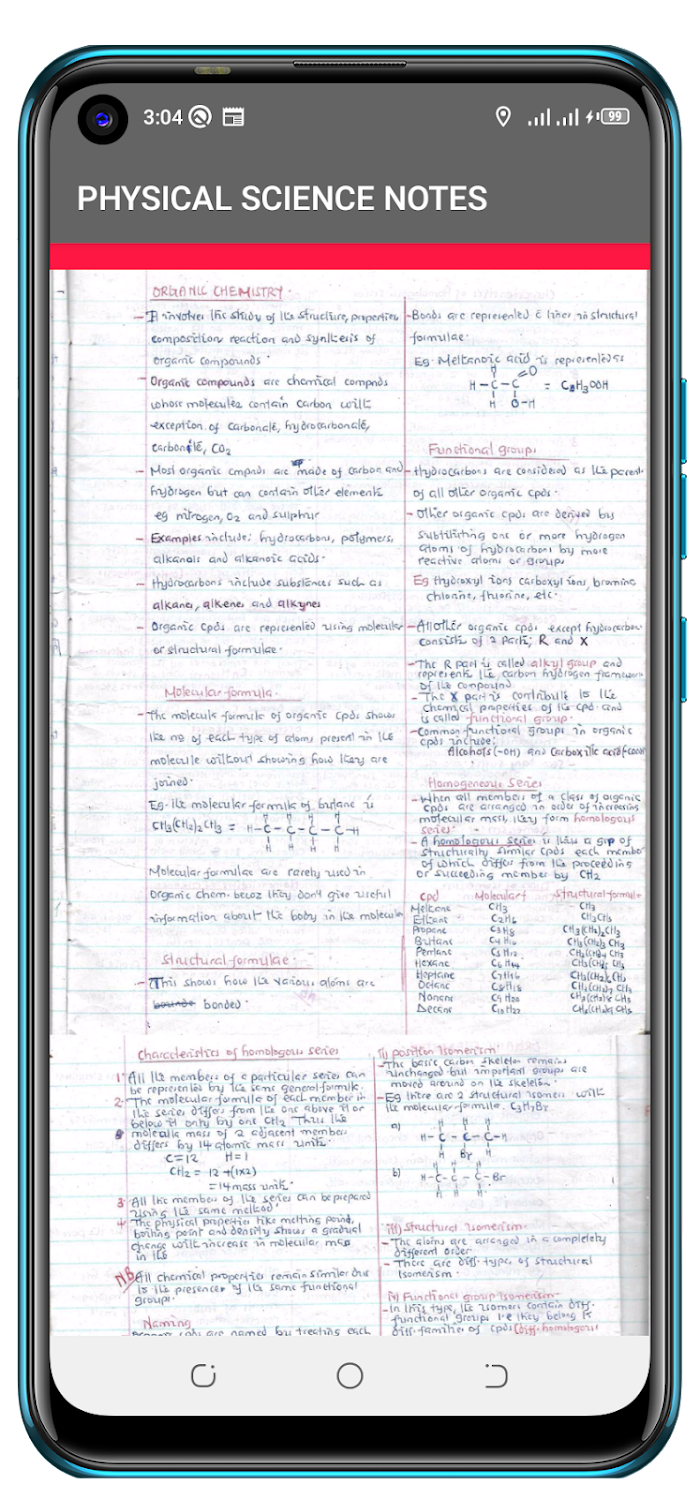 3:04
99
PHYSICAL SCIENCE NOTES
ORGANIC CHEMISTRY.
- It involves the study of the structure, properties
composition reaction and synthesis of
organic compounds.
- Organic compounds are chemical compnds
whose molecules contain carbon with
exception of carbonate, hydrocarbonate,
CO2
- Most organic cmpnds are made of carbon and
hydrogen but can contain other elements
eg nitrogen, O2 and sulphur
- Examples include; hydrocarbons, polymers,
alkanols and alkanoic acids.
- Hydrocarbons include substances such as
alkanes, alkenes and alkynes
- Organic cpds are represented using molecular
or structural formulae.
Molecular formula.
- The molecule formule of organic cpds shows
the no of each type of atoms present in the
molecule without showing how they are
joined.
Eg. the molecular formule of butane is
CH3(CH2)2CH3 = H-C-C-C-C-H
Molecular formulae are rarely used in
Organic chem. becoz they don't give useful
information about the body in the molecule
Structural formulae.
- This shows how the various atoms are
bonded.
- Bonds are represented lines in structural
formulae.
Eg. Methanoic acid is represented as
H-C-C
H O-H
Functional groups
- Hydrocarbons are considered as the parent
of all other organic cpds.
- Other organic cpds are derived by
one or more hydrogen
atoms of hydrocarbons by more
reactive atoms or groups
Eg Hydroxyl ions carboxyl ions, bromine
chlorine, fluorine, etc.
- All other organic cpds except hydrocarbons
consists of 2 parts; R and X
- The R part is called alkyl group and
represents the carbon hydrogen framework
of the compound
- The X part is contribute to the
chemical properties of the cpd and
is called functional group.
- Common functional groups in organic
cpds include;
Alcohols (-OH) and
Homogeneous Series
- When all members of a class of organic
cpds are arranged in order of increasing
molecular mass, they form homologous
series.
- A homologous series is thus a grp of
structurally similar cpds each member
of which differs from the proceeding
or succeeding member by CH2
cpd Molecular f Structural formula
Methane CH3 CH3
Ethane C2H6 CH3CH3
Propane C3H8 CH3(CH2)2CH3
Butane C4H10 CH3(CH2)2CH3
Pentane C5H12 CH3(CH2)4CH3
Hexane C6H14 CH3(CH2)5CH3
Heptane C7H16 CH3(CH2)6CH3
Octane C8H18 CH3(CH2)7CH3
Nonane C9H20 CH3(CH2)8CH3
Decane C10H22 CH3(CH2)9CH3
Characteristics of homologous series
1 All the members of a particular series can
be represented by the same general formule.
2. The molecular formule of each member in
the series differs from the one above it or
below it only by one CH2. Thus the
molecule mass of 2 adjacent members
differs by 14 atomic mass units.
C=12 H=1
CH2 = 12+(1x2)
=14 mass units.
3 All the members of the series can be prepared
using the same method.
4. The physical properties like melting point,
boiling point and density shows a gradual
change with increase in molecular mass
in the
NB All chemical properties remain similar due
to the presence of the same functional
groups.
Naming
cpds are named by treating each
ii) position Isomerism.
- The basic carbon skeleton remains
unchanged but important groups are
moved around on the skeleton.
- Eg there are 2 structural isomers with
the molecular formule. C3H7Br
a)
H-C-C-C-H
H Br H
b)
H-C-C-C-Br
iii) Structural isomerism.
- The atoms are arranged in a completely
different order
- There are diff. types of structural
Isomerism.
iv) Functional group Isomerism
- In this type, the isomers contain diff.
functional groups i.e they belong to
diff. families of cpds (diff. homologous